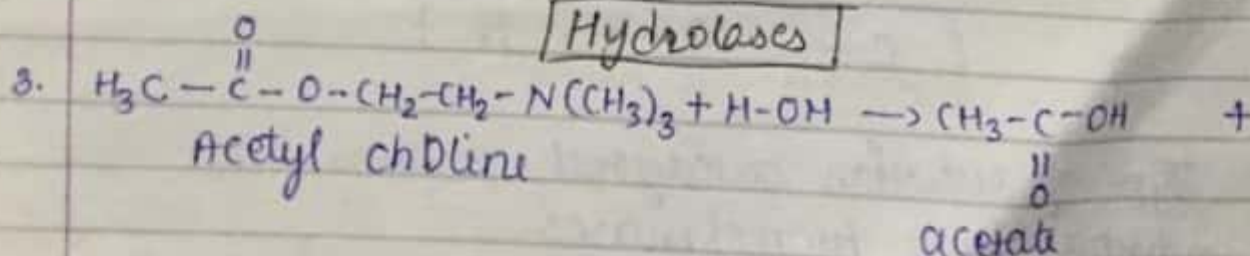 Hydrolases
O
||
3. H₃C - C - O - CH₂ - CH₂ - N(CH₃)₃ + H-OH → CH₃ - C - OH +
Acetyl choline
||
O
acetate